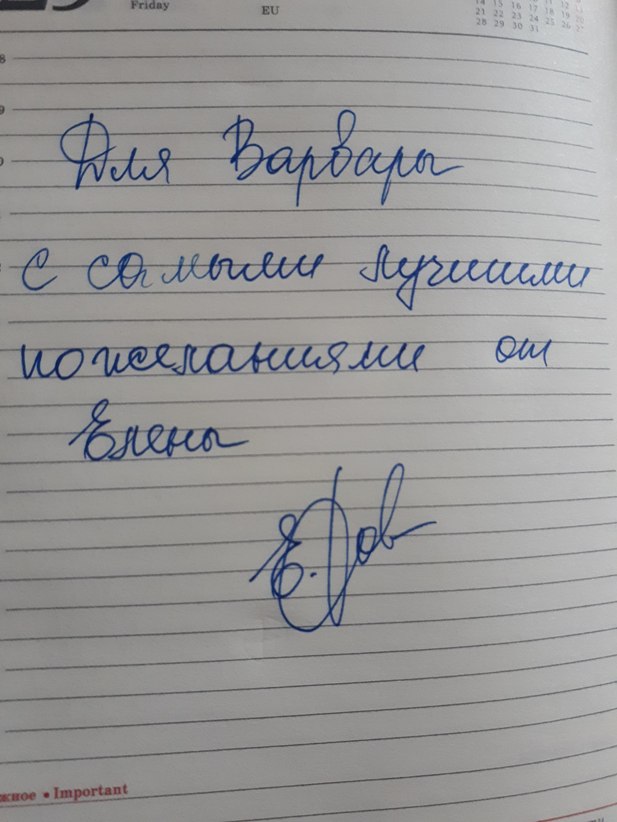 Friday
EU
21 22 23 24 25 26 27
28 29 30 31
8
9
Для Варвары
с самыми лучшими
пожеланиями от
Елены
жное • Important